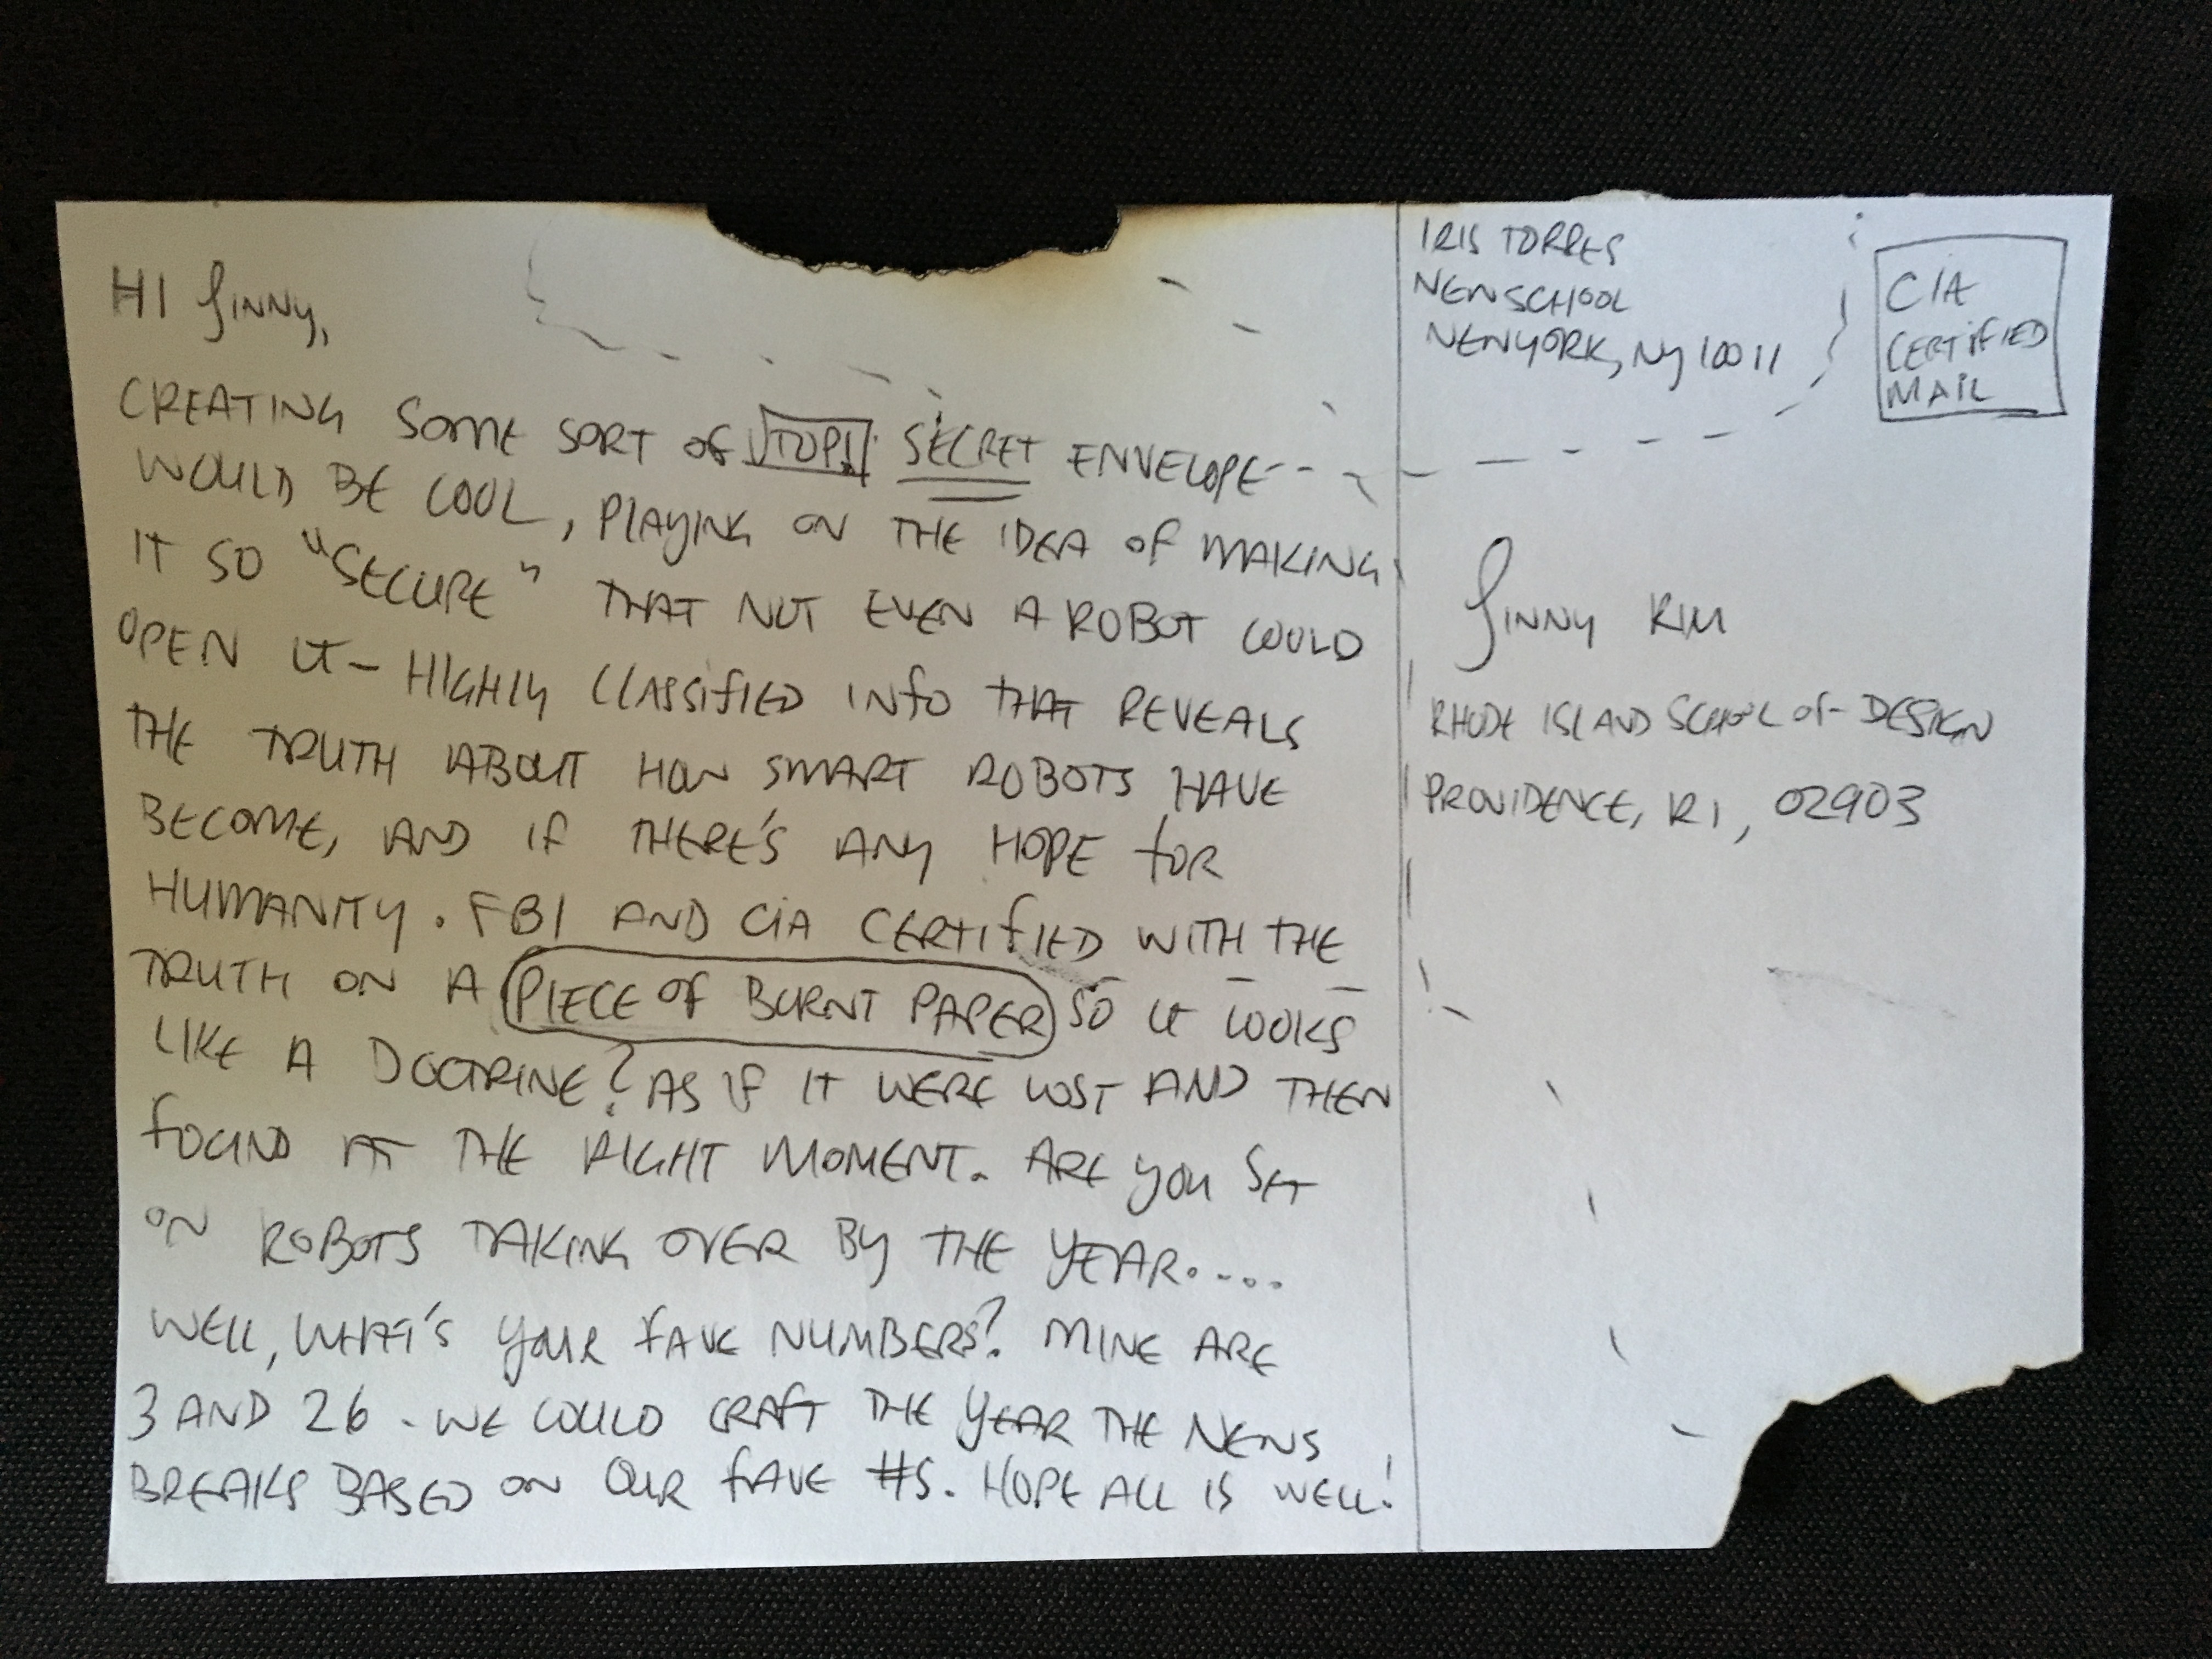 HI GINNY,
CREATING SOME SORT OF TOP SECRET ENVELOPE--
WOULD BE COOL, PLAYING ON THE IDEA OF MAKING
IT SO "SECURE" THAT NOT EVEN A ROBOT COULD
OPEN IT - HIGHLY CLASSIFIED INFO THAT REVEALS
THE TRUTH ABOUT HOW SMART ROBOTS HAVE
BECOME, AND IF THERE'S ANY HOPE FOR
HUMANITY. FBI AND CIA CERTIFIED WITH THE
TRUTH ON A PIECE OF BURNT PAPER SO IT LOOKS
LIKE A DOCTRINE? AS IF IT WERE LOST AND THEN
FOUND AT THE RIGHT MOMENT. ARE YOU SET
ON ROBOTS TAKING OVER BY THE YEAR....
WELL, WHAT'S YOUR FAVE NUMBERS? MINE ARE
3 AND 26 - WE COULD CRAFT THE YEAR THE NEWS
BREAKS BASED ON OUR FAVE #S. HOPE ALL IS WELL!
IRIS TORRES
NEW SCHOOL
NEW YORK, NY 10011
CIA
CERTIFIED
MAIL
GINNY KIM
RHODE ISLAND SCHOOL OF DESIGN
PROVIDENCE, RI, 02903